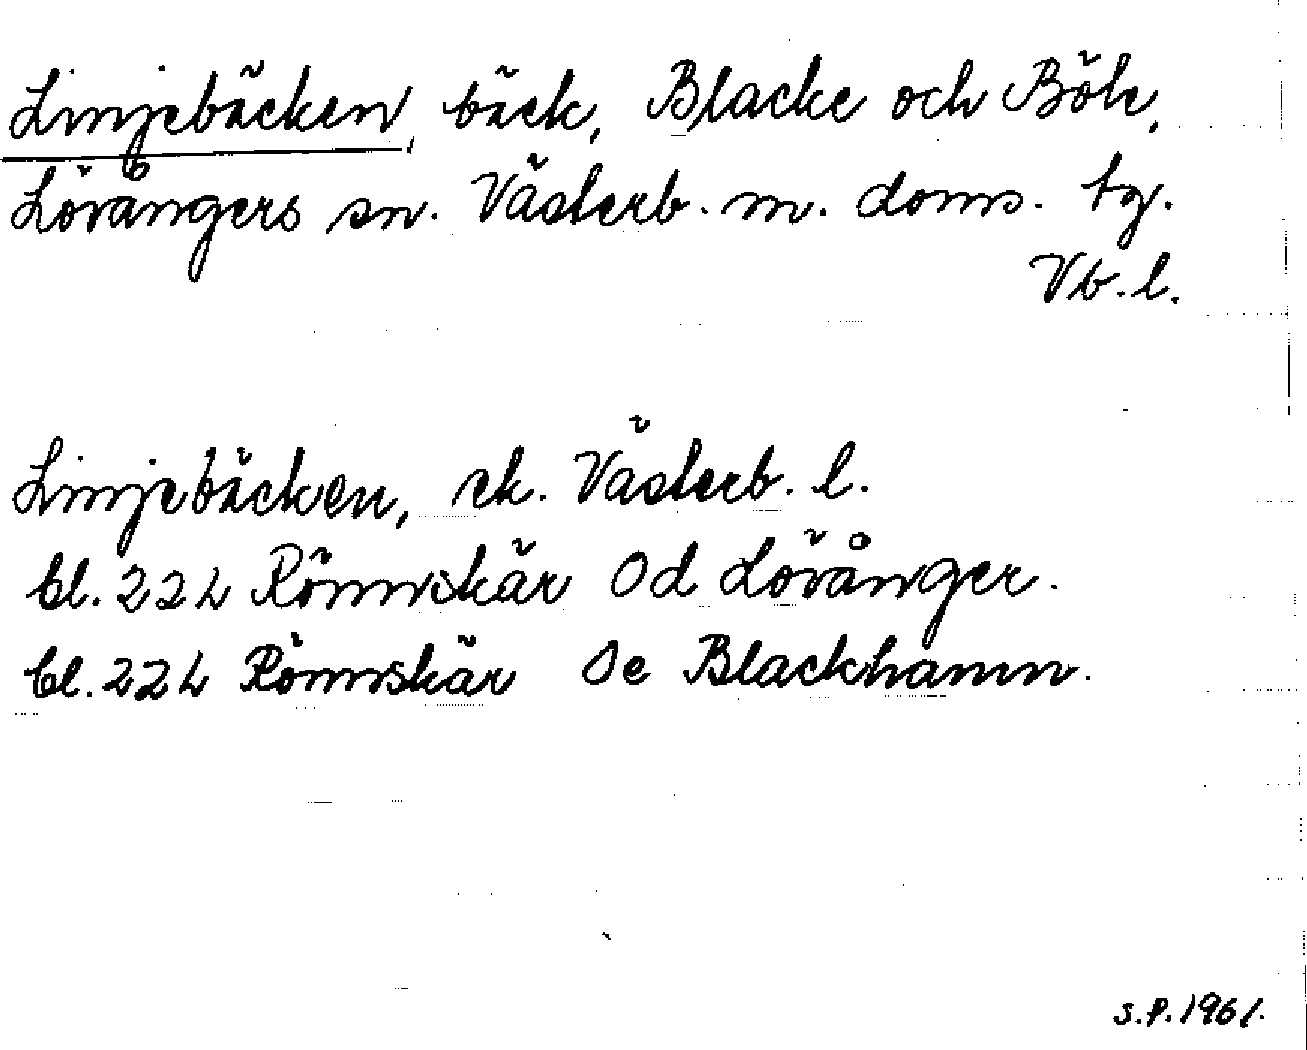 Linjebäcken, bäck, Blacke och Böle,
Lövångers sn. Västerb. m. doms. tg.
Vb. l.
Linjebäcken, ek. Västerb. l.
bl. 22 L Rönnskär Od Lövånger.
bl. 22 L Rönnskär Oe Blackhamn.
S.P. 1961.